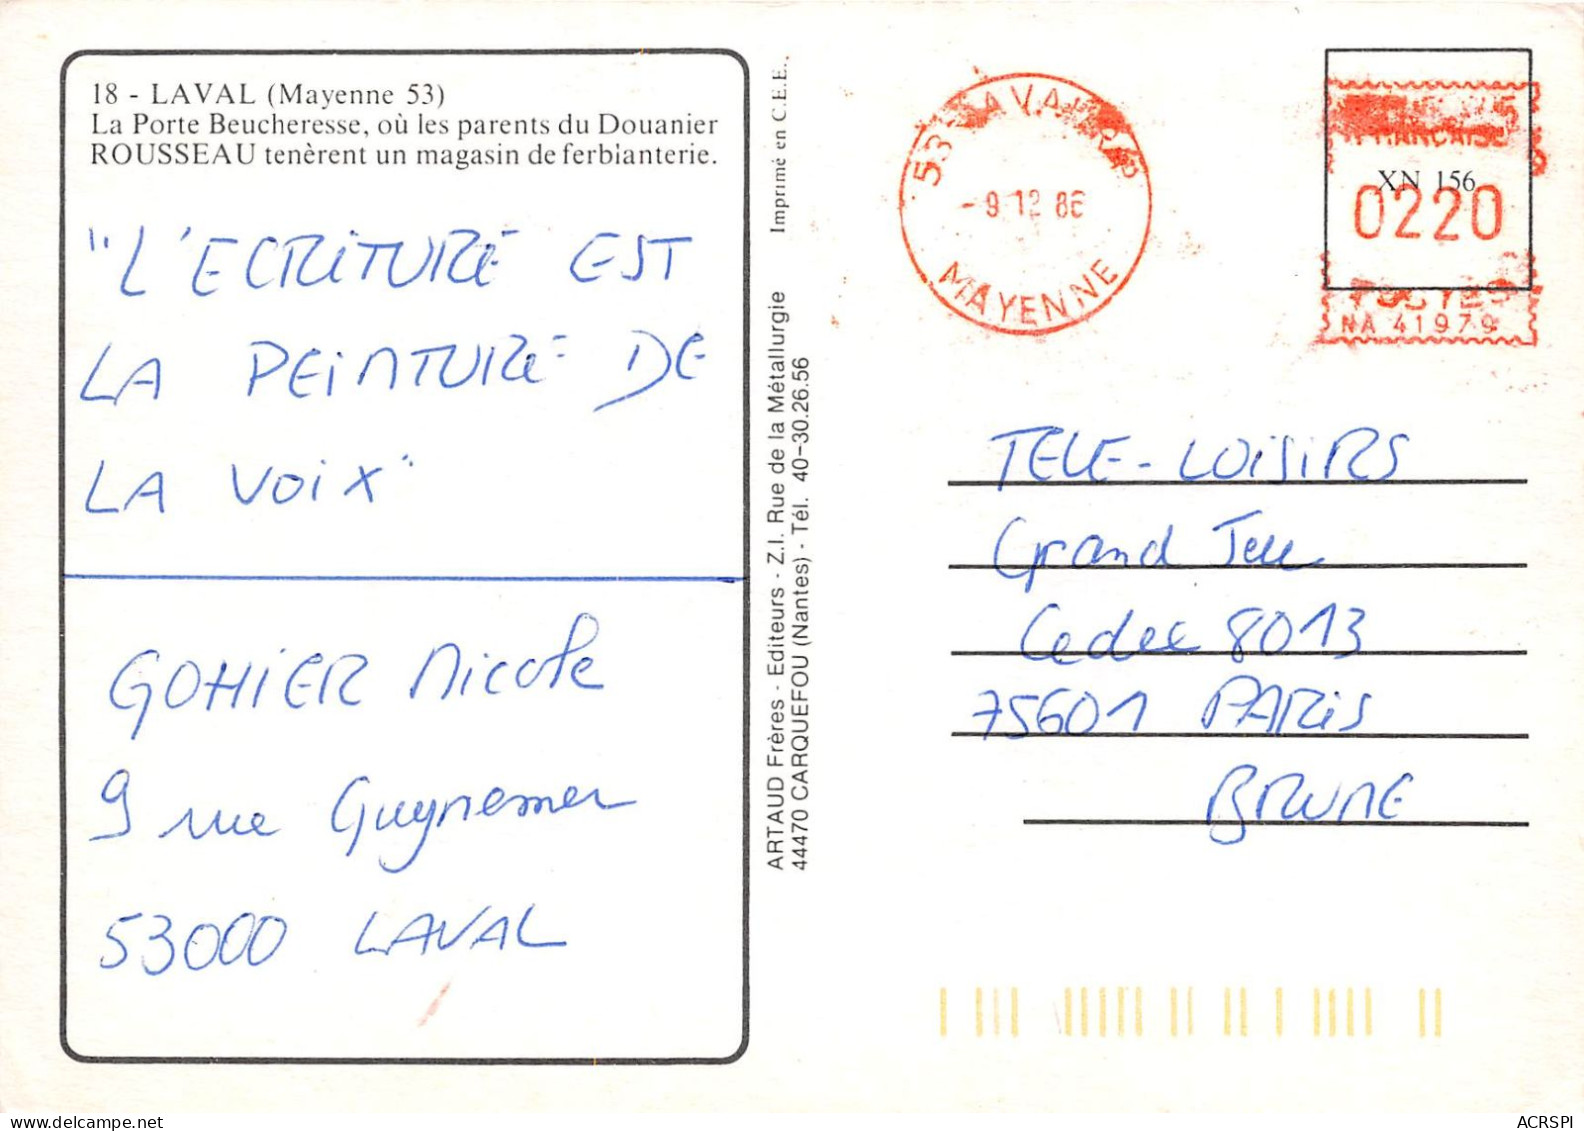 18 - LAVAL (Mayenne 53)
La Porte Beucheresse, où les parents du Douanier
ROUSSEAU tenèrent un magasin de ferblanterie.
"L'ECRITURE EST
LA PEINTURE DE
LA VOIX"
GOHIER Nicole
9 rue Guynemer
53000 LAVAL
Imprimé en C.E.E.
ARTAUD Frères - Editeurs - Z.I. Rue de la Métallurgie
44470 CARQUEFOU (Nantes) - Tél. 40-30.26.56
53 LAVAL R.P.
- 9 12 86
MAYENNE
FRANCAISE
XN 156
0220
POSTES
NA 41979
TELE-LOISIRS
Grand Jeu
Cedex 8013
75601 PARIS
BRUNE
ACRSPI